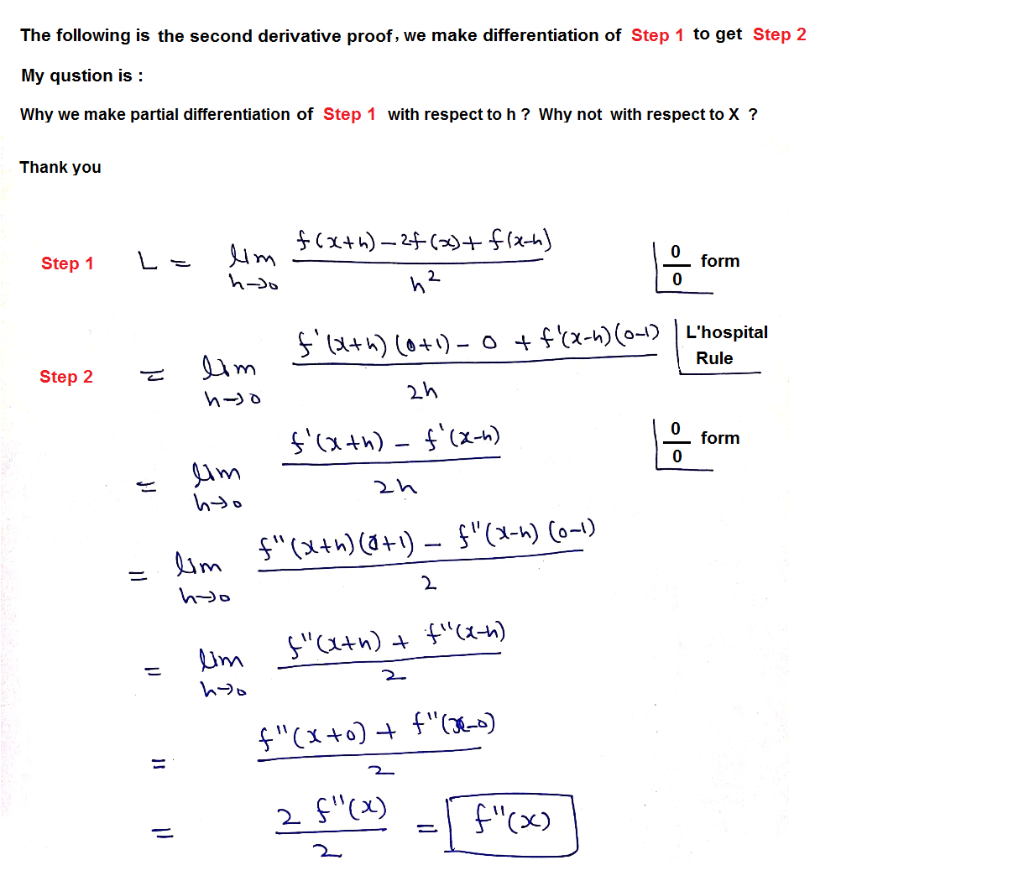 The following is the second derivative proof, we make differentiation of Step 1 to get Step 2
My qustion is :
Why we make partial differentiation of Step 1 with respect to h ? Why not with respect to X ?
Thank you
Step 1 L = lim h→0 f(x+h) – 2f(x) + f(x-h) / h² 0/0 form
Step 2 = lim h→0 f'(x+h)(0+1) – 0 + f'(x-h)(0-1) / 2h L'hospital Rule
= lim h→0 f'(x+h) – f'(x-h) / 2h 0/0 form
= lim h→0 f"(x+h)(0+1) – f"(x-h)(0-1) / 2
= lim h→0 f"(x+h) + f"(x-h) / 2
= f"(x+0) + f"(x-0) / 2
= 2 f"(x) / 2 = f"(x)